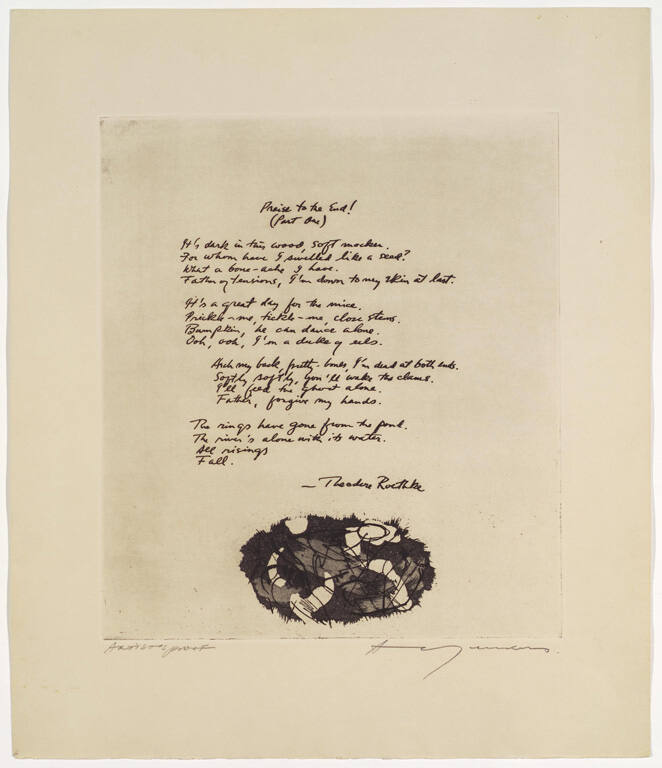 Praise to the End!
(Part One)
It's dark in this wood, soft mocker.
For whom have I swelled like a seed?
What a bone-ache I have.
Father of tensions, I'm down to my skin at last.
It's a great day for the mice.
Prickle-me, tickle-me, close stems.
Bumpkin, he can dance alone.
Ooh, ooh, I'm a duke of eels.
Arch my back, pretty-bones, I'm dead at both ends.
Softly, softly, you'll wake the clams.
I'll feed the ghost alone.
Father, forgive my hands.
The rings have gone from the pond.
The river's alone with its water.
All risings
Fall.
— Theodore Roethke
Artist's proof